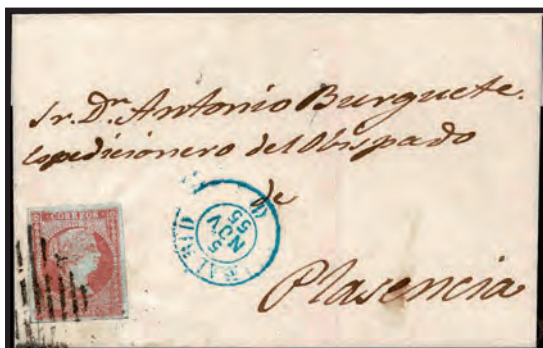 Sr. Dn. Antonio Burguete.
Espedicionero del Obispado
de
Plasencia
CORREOS
5
NOV
55